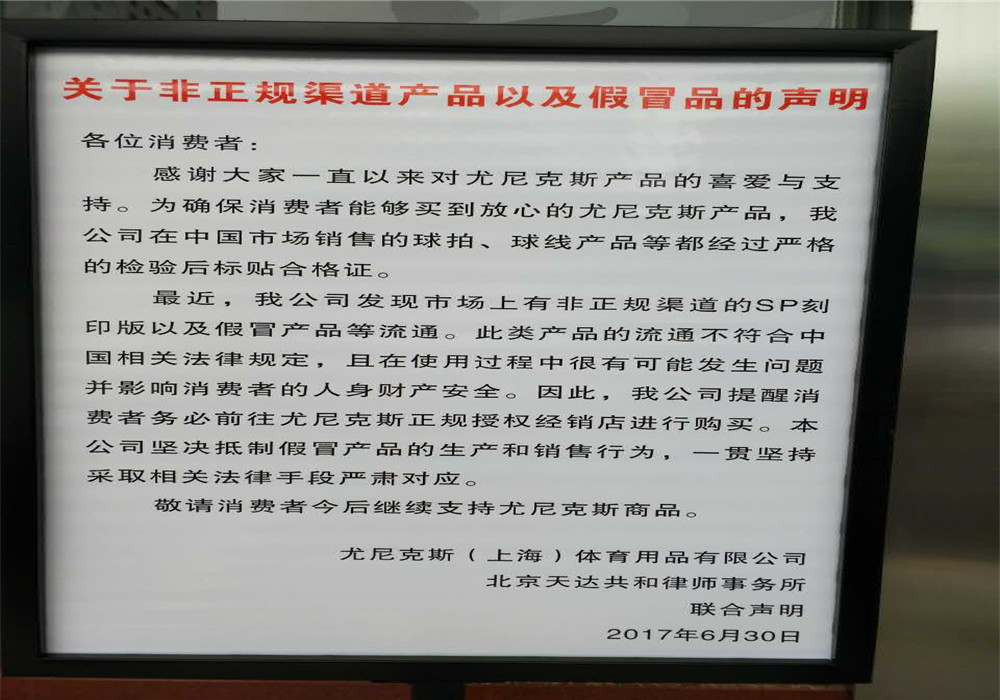 关于非正规渠道产品以及假冒品的声明
各位消费者：
感谢大家一直以来对尤尼克斯产品的喜爱与支
持。为确保消费者能够买到放心的尤尼克斯产品，我
公司在中国市场销售的球拍、球线产品等都经过严格
的检验后标贴合格证。
最近，我公司发现市场上有非正规渠道的SP刻
印版以及假冒产品等流通。此类产品的流通不符合中
国相关法律规定，且在使用过程中很有可能发生问题
并影响消费者的人身财产安全。因此，我公司提醒消
费者务必前往尤尼克斯正规授权经销店进行购买。本
公司坚决抵制假冒产品的生产和销售行为，一贯坚持
采取相关法律手段严肃对应。
敬请消费者今后继续支持尤尼克斯商品。
尤尼克斯（上海）体育用品有限公司
北京天达共和律师事务所
联合声明
2017年6月30日